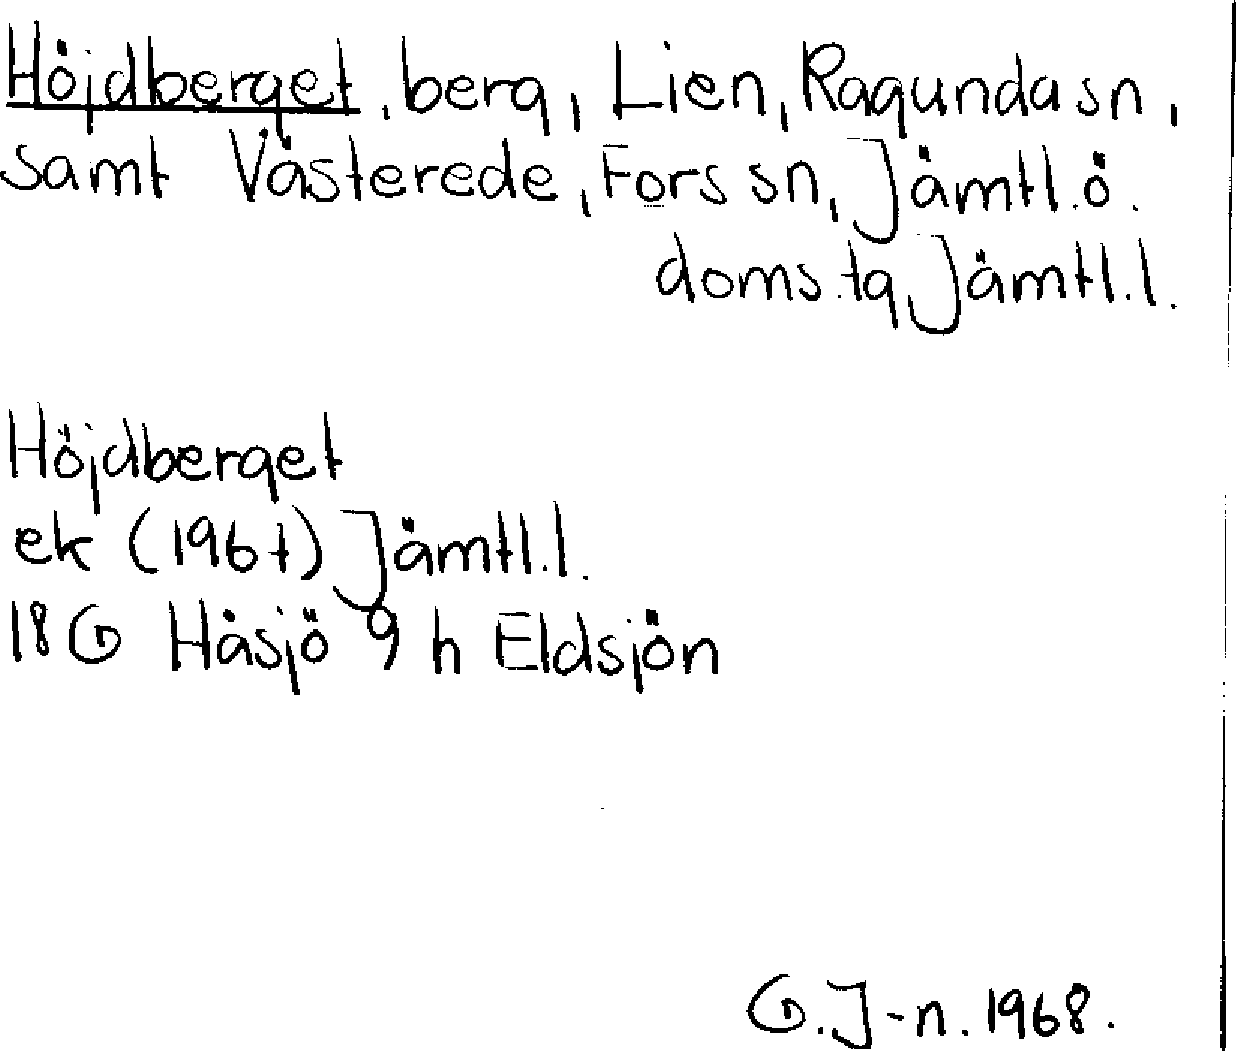 Höjdberget, berg, Lien, Ragunda sn,
samt Västerede, Fors sn, Jämtl.ö.
doms.tg, Jämtl.l.
Höjdberget
ek (1967) Jämtl.l.
18 G Håsjö 9 h Eldsjön
G.J-n. 1968.